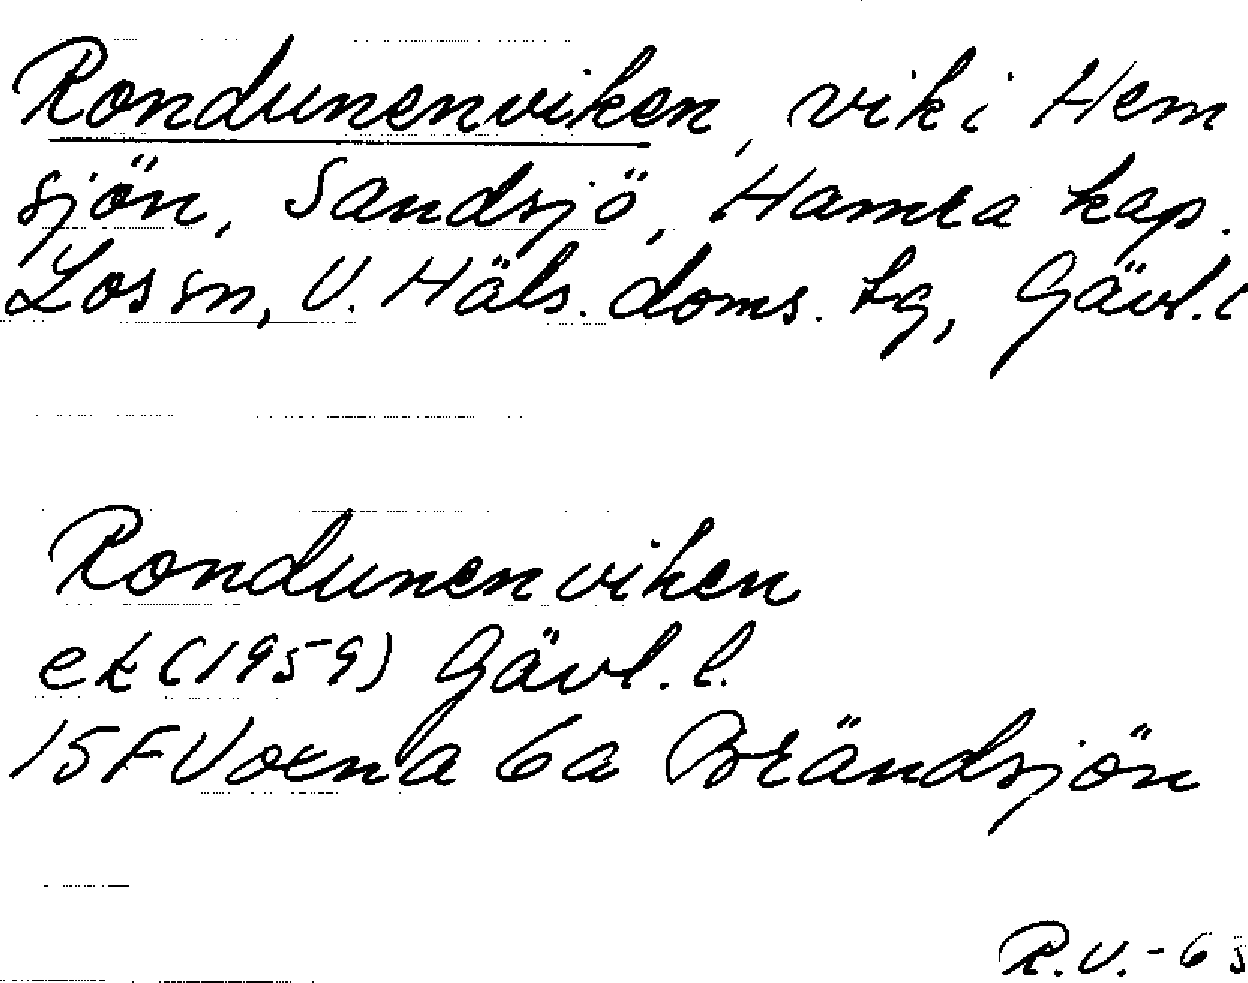 Rondunenviken, vik i Hem
sjön, Sandsjö, Hamra kap.
Los sn, V. Häls. doms. tg, Gävl. l
Rondunenviken
ek (1959) Gävl. l.
15F Voxna 6a Brändsjön
R.V.-65